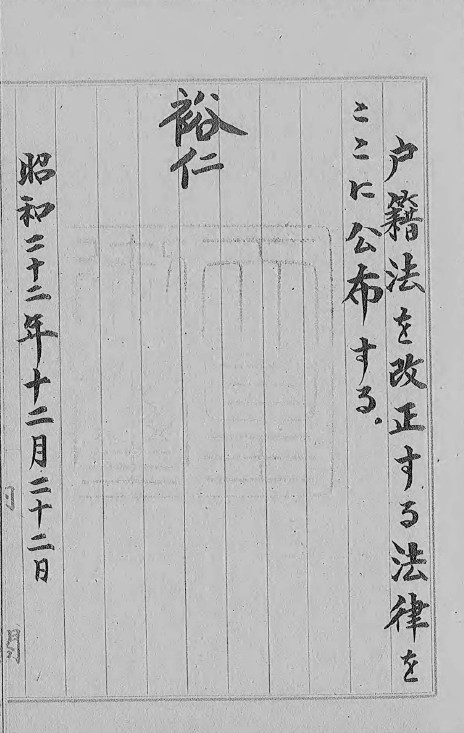 戸籍法を改正する法律を
ここに公布する。
裕仁
昭和二十二年十二月二十二日